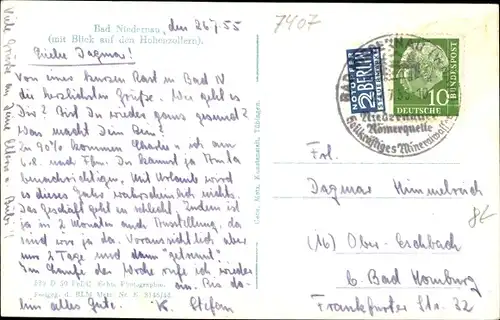 Bad Niedernau, den 26.7.55
(mit Blick auf den Hohenzollern).
Liebe Dagmar!
Von einer kurzen Rast in Bad N
die herzlichsten Grüße. Wie geht es
Dir? Bist Du wieder ganz gesund?
Was macht Dein Bein?
Zu 90% kommen Charlie + ich am
6.8. nach Ffm. Du kannst ja
benachrichtigen. Mit Urlaub wird
es dieses Jahr wahrscheinlich nichts.
Das Geschäft geht zu schlecht. Zudem ist
ja in 2 Monaten auch Ausstellung, da
sind wir ja da. Voraussichtlich aber
nur 2 Tage und dann "getrennt".
Im Laufe der Woche rufe ich wieder
an. Bis da-
hin alles Gute. K. Stefan
Viele Grüße an Deine Eltern +
Echte Photographie
Gebr. Metz, Kunstanstalt, Tübingen.
7407
NOTOPFER
2 BERLIN
STEUERMARKE
10
DEUTSCHE
BUNDESPOST
BAD
Niedernau
Römerquelle
Heilkräftiges Mineralwasser
Frl.
Dagmar Himmelreich
(16) Ober-Eschbach
b. Bad Homburg
Frankfurter Str. 32
8€